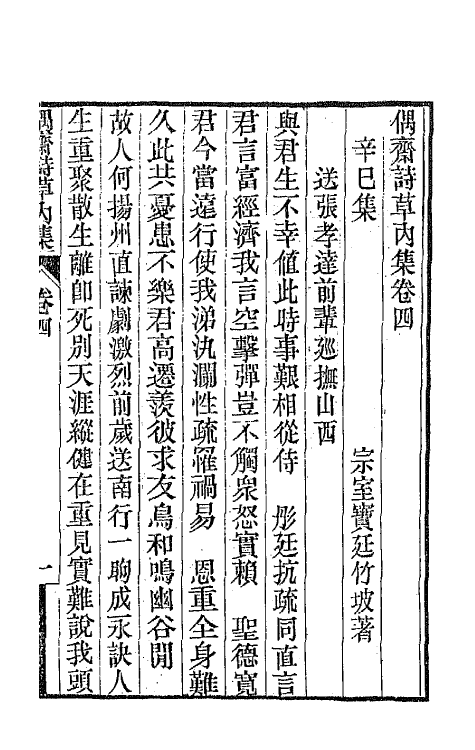 偶齋詩草內集卷四
辛巳集　宗室寶廷竹坡著
送張孝達前輩廵撫山西
與君生不幸値此時事艱相從侍　彤廷抗疏同直言
君言富經濟我言空擊彈豈不觸衆怒實賴　聖德寬
君今當遠行使我涕汍瀾性疏罹禍易　恩重全身難
久此共憂患不樂君高遷羨彼求友鳥和鳴幽谷閒
故人何揚州直諫劇激烈前歲送南行一朐成永訣人
生重聚散生離卽死別天涯縱健在重見實難說我頭
偶齋詩草內集　卷四　一